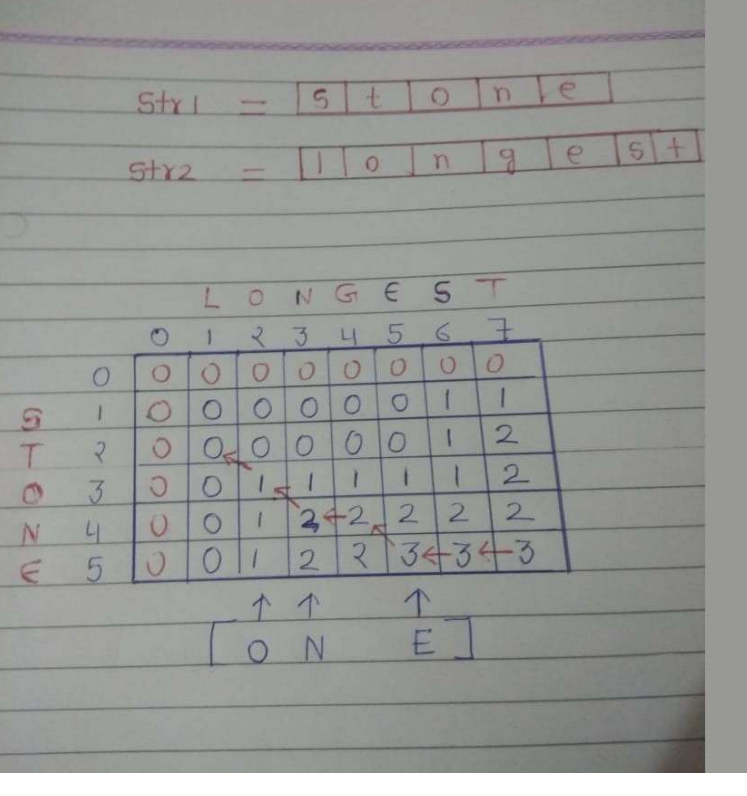 Str1 = s t o n e
Str2 = l o n g e s t
L O N G E S T
0 1 2 3 4 5 6 7
0 0 0 0 0 0 0 0 0
S 1 0 0 0 0 0 0 1 1
T 2 0 0 0 0 0 0 1 2
O 3 0 0 1 1 1 1 1 2
N 4 0 0 1 2 ← 2 2 2 2
E 5 0 0 1 2 2 3 ← 3 ← 3
↑ ↑ ↑
[ O N E ]